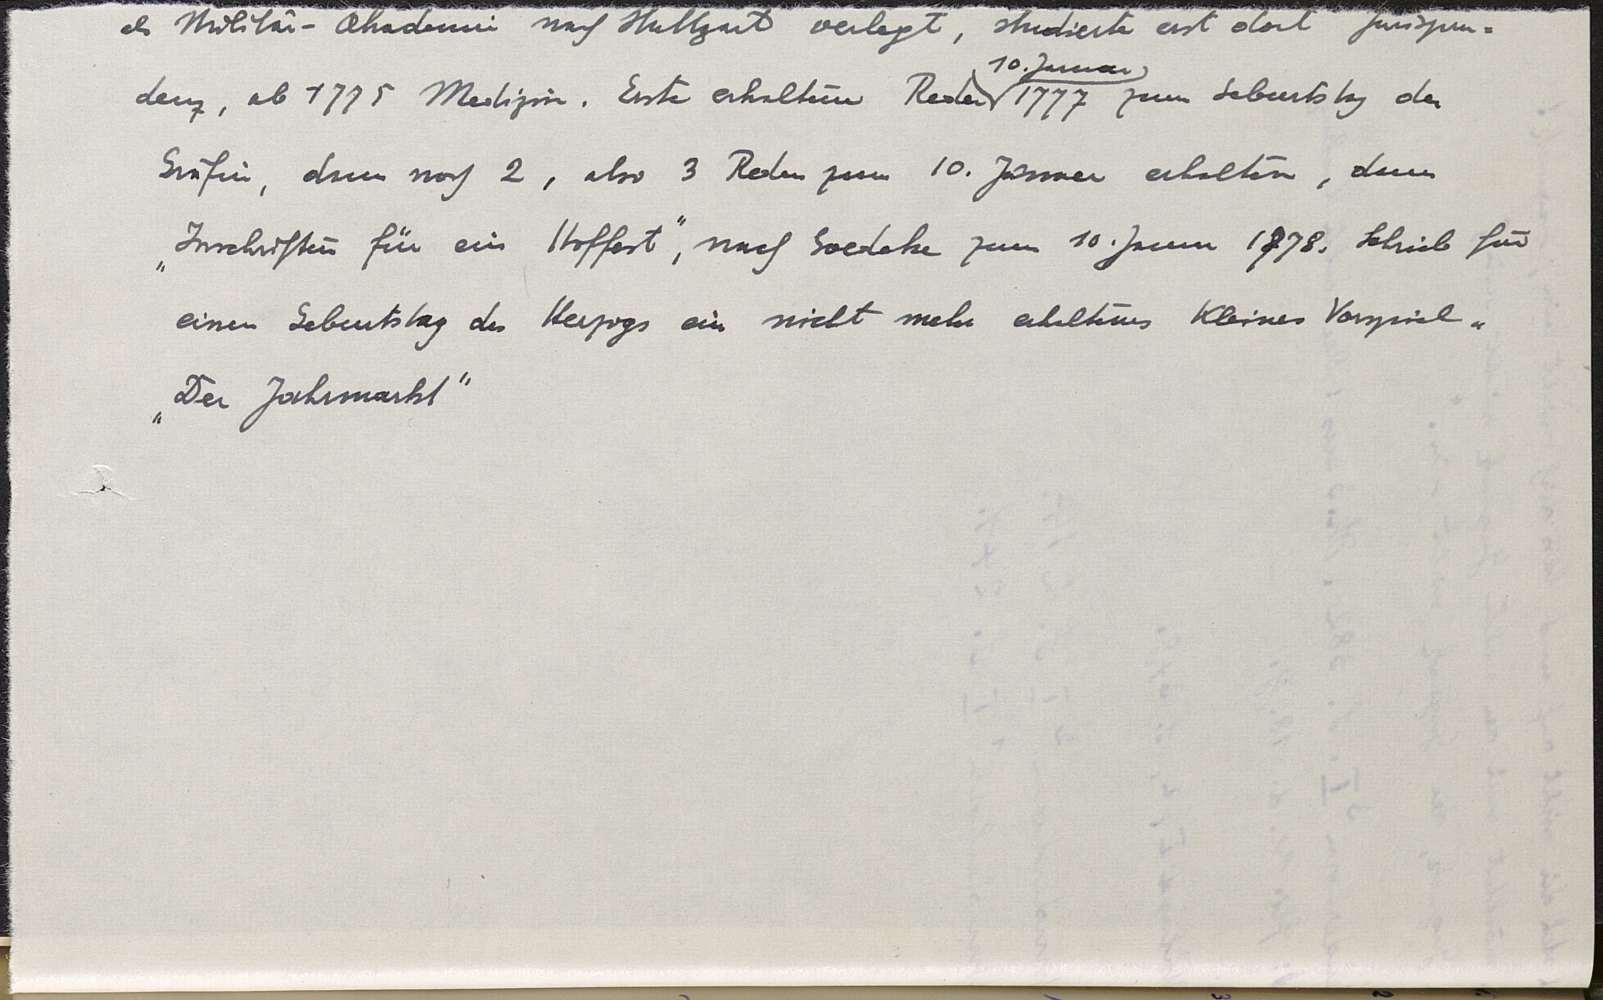 als Militär-Akademie nach Stuttgart verlegt, studierte erst dort Jurispru-
denz, ab 1775 Medizin. Erste erhaltene Reden 10. Januar 1777 zum Geburtstag der
Gräfin, dann noch 2, also 3 Reden zum 10. Januar erhalten, dann
„Inschriften für ein Hoffest“, nach Goedeke zum 10. Januar 1778. Schrieb für
einen Geburtstag des Herzogs ein nicht mehr erhaltenes kleines Vorspiel
„Der Jahrmarkt“